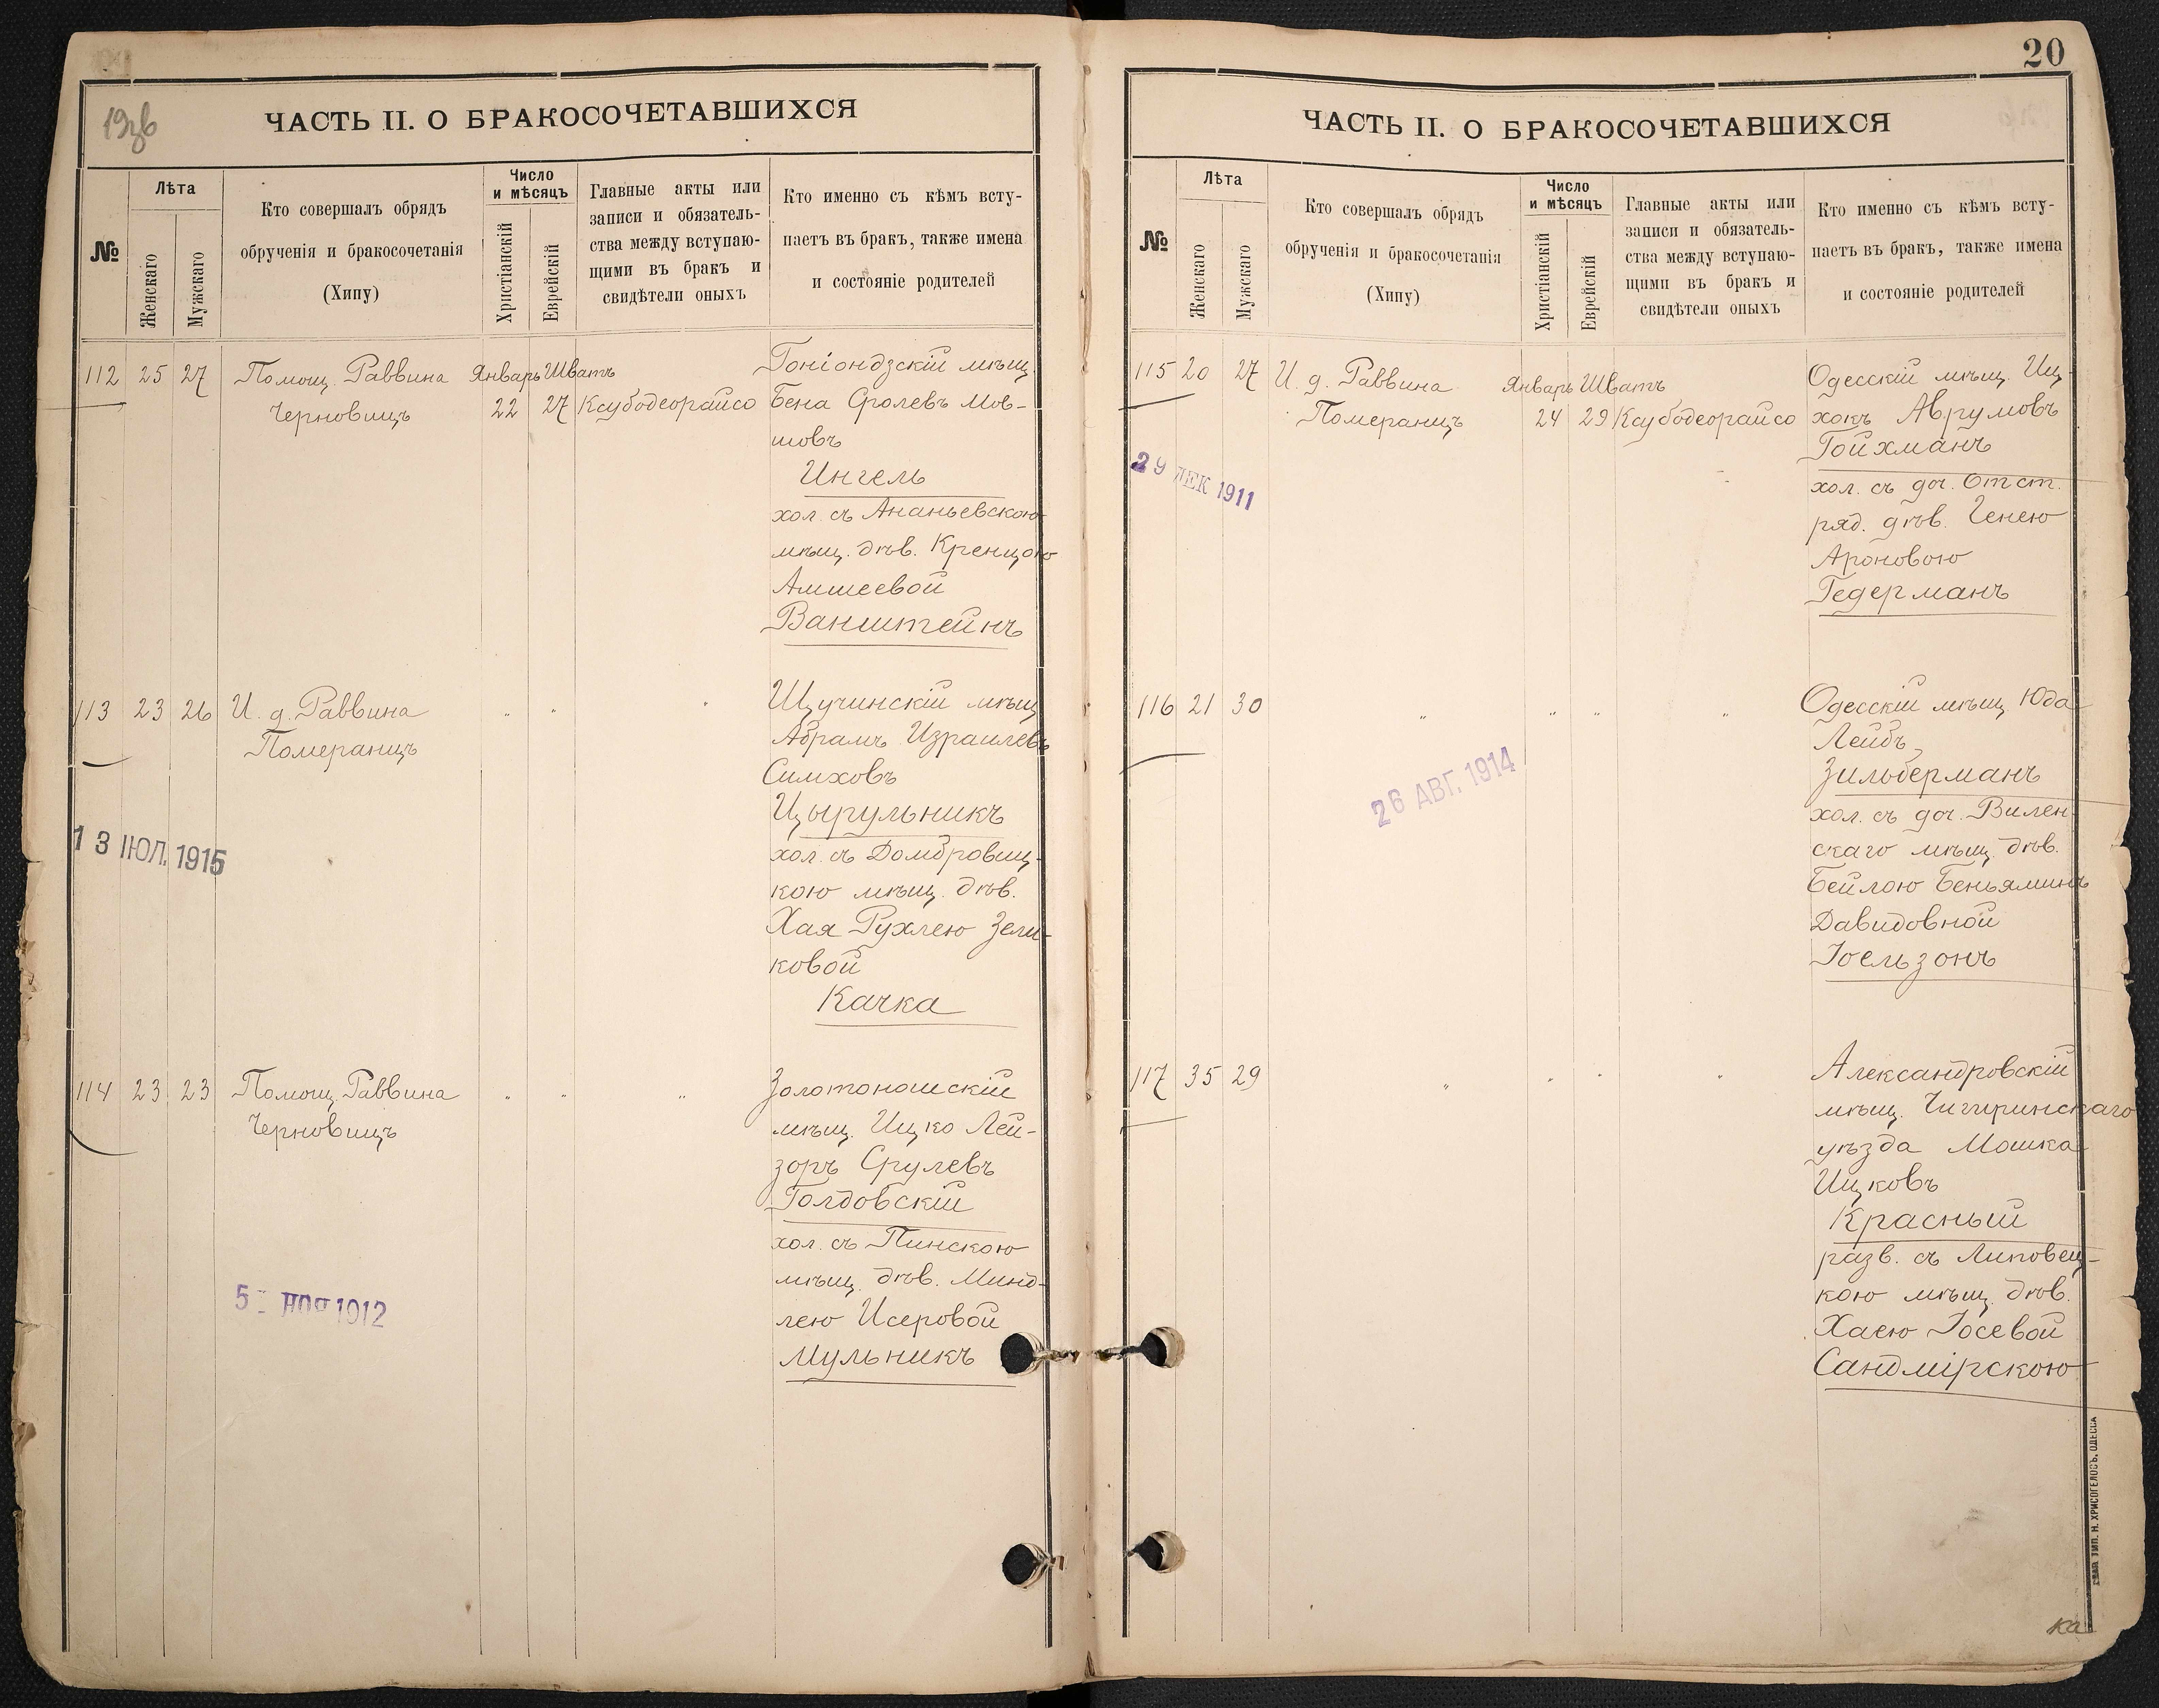 19об
ЧАСТЬ II. О БРАКОСОЧЕТАВШИХСЯ
№
Лѣта
Женскаго
Мужскаго
Кто совершалъ обрядъ
обрученія и бракосочетанія
(Хипу)
Число
и мѣсяцъ
Христіанскій
Еврейскій
Главные акты или
записи и обязатель-
ства между вступаю-
щими въ бракъ и
свидѣтели оныхъ
Кто именно съ кѣмъ всту-
паетъ въ бракъ, также имена
и состояніе родителей
112 25 27 Помощ. Раввина Январь Шватъ
Черновицъ 22 27 Ксубодеорайсо
Гоніондзскій мѣщ.
Бена Сролевъ Мов-
шовъ
Ингель
хол. съ Ананьевскою
мѣщ. дѣв. Кренцою
Амшеевой
Ванштейнъ
113 23 26 И. д. Раввина " " "
Померанцъ
13 ІЮЛ. 1915
Щучинскій мѣщ.
Абрамъ Израилевъ
Симховъ
Цырульникъ
хол. съ Домбровиц-
кою мѣщ. дѣв.
Хая Рухлею Зели-
ковой
Качка
114 23 23 Помощ. Раввина " " "
Черновицъ
5 - НОЯ 1912
Золотоношскій
мѣщ. Ицко Лей-
зоръ Срулевъ
Голдовскій
хол. съ Пинскою
мѣщ. дѣв. Минд-
лею Исеровой
Мульникъ
20
ЧАСТЬ II. О БРАКОСОЧЕТАВШИХСЯ
№
Лѣта
Женскаго
Мужскаго
Кто совершалъ обрядъ
обрученія и бракосочетанія
(Хипу)
Число
и мѣсяцъ
Христіанскій
Еврейскій
Главные акты или
записи и обязатель-
ства между вступаю-
щими въ бракъ и
свидѣтели оныхъ
Кто именно съ кѣмъ всту-
паетъ въ бракъ, также имена
и состояніе родителей
115 20 27 И. д. Раввина Январь Шватъ
Померанцъ 24 29 Ксубодеорайсо
29 ДЕК 1911
Одесскій мѣщ. Иц-
хокъ Аврумовъ
Гойхманъ
хол. съ доч. Отст.
ряд. дѣв. Генею
Ароновою
Гедерманъ
116 21 30 " " " "
26 АВГ. 1914
Одесскій мѣщ. Юда
Лейбъ
Зильберманъ
хол. съ доч. Вилен-
скаго мѣщ. дѣв.
Бейлою Беньяминъ
Давидовной
Іоельзонъ
117 35 29 " " " "
Александровскій
мѣщ. Чигиринскаго
уѣзда Мошка
Ицковъ
Красный
разв. съ Липовец-
кою мѣщ. дѣв.
Хаею Іосевой
Сандмірскою
ТИП. Н. ХРИСОГЕЛОСЪ, ОДЕССА